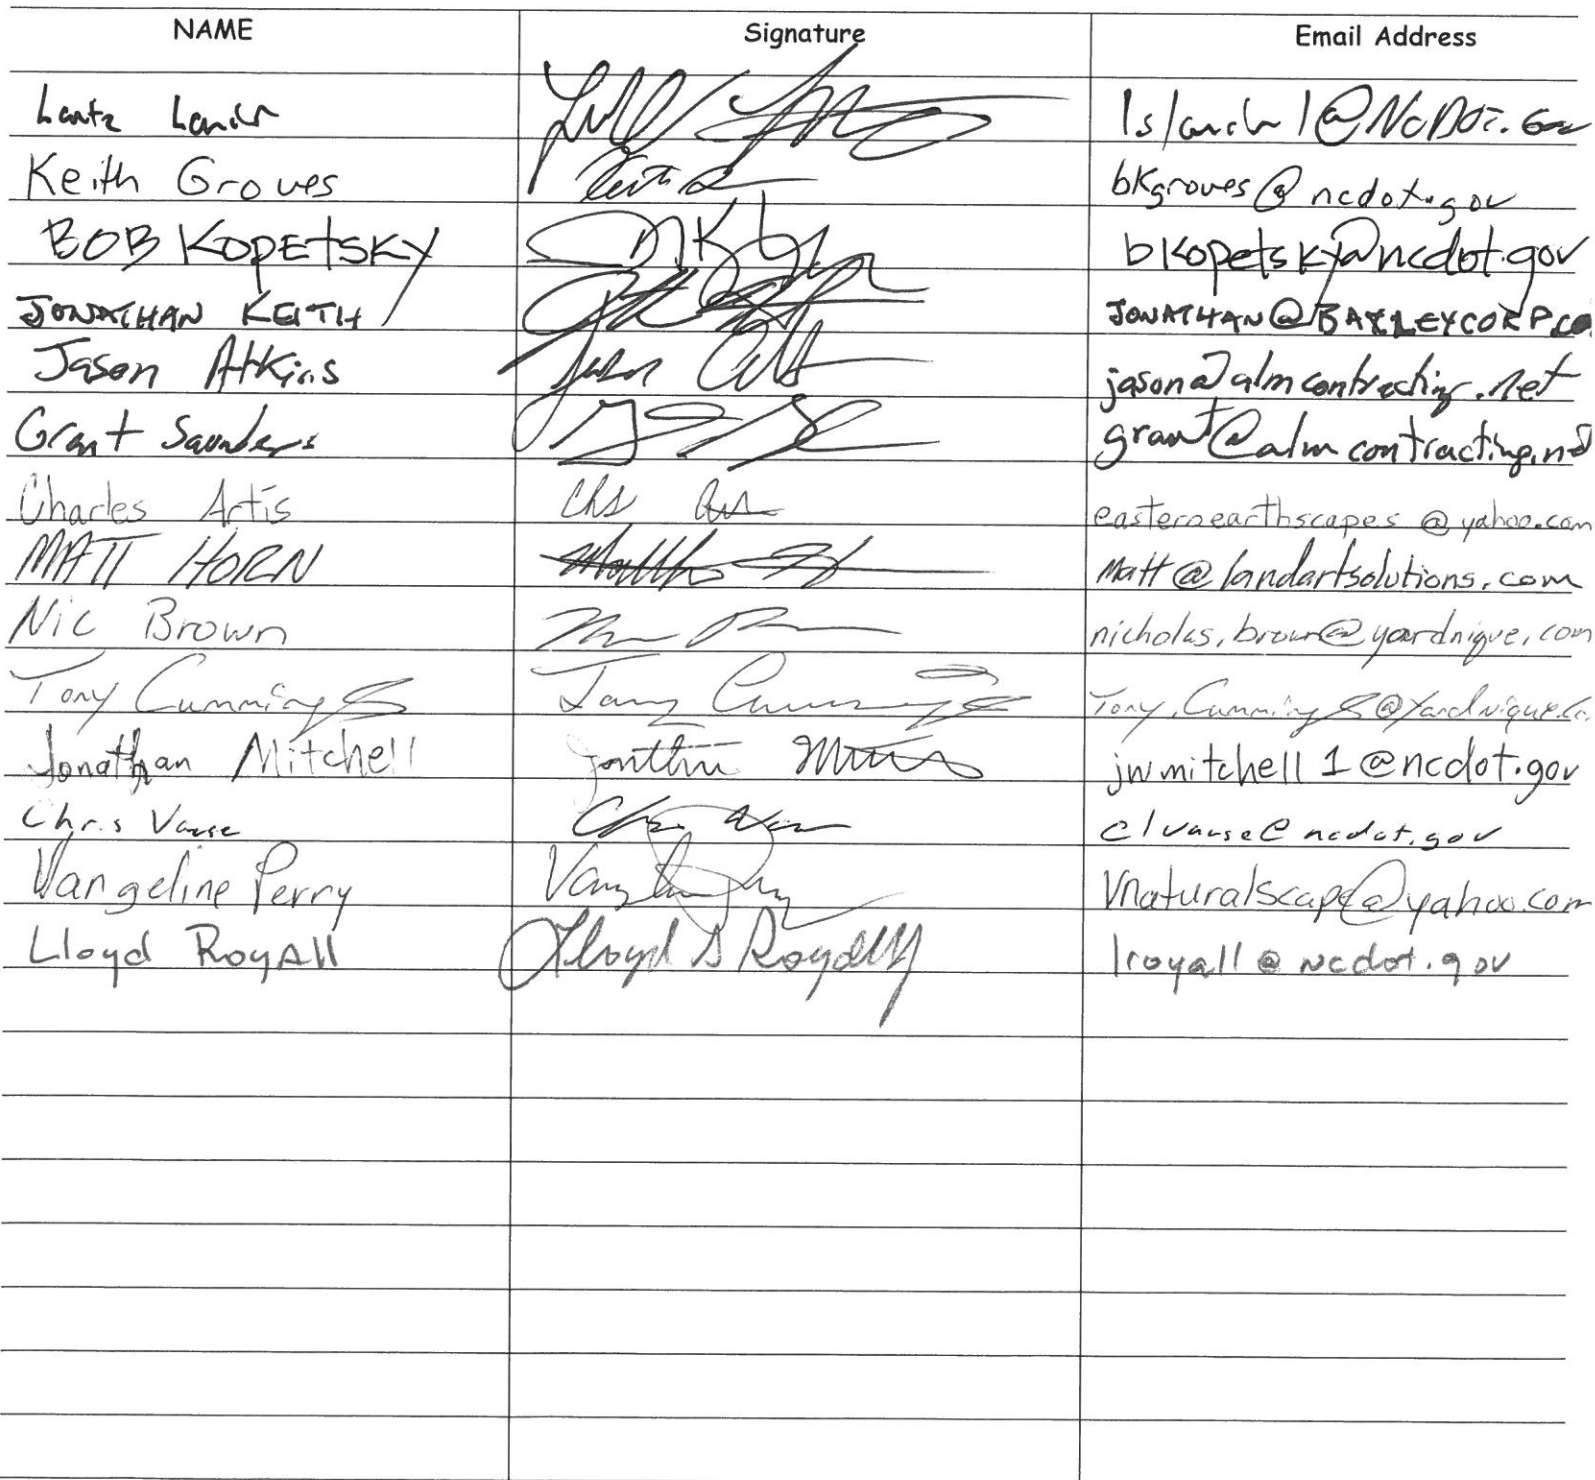 NAME Signature Email Address
Keith Groves Keith bkgroves@ncdot.gov
BOB KOPETSKY bkopetsky@ncdot.gov
JONATHAN KEITH JONATHAN@BAYLEYCORP.CO
Jason Atkins Jason jason@almcontracting.net
Grant Saunders grant@almcontracting.net
Charles Artis easternearthscapes@yahoo.com
MATT HORN Matt@landartsolutions.com
Nic Brown nicholas.brown@yardnique.com
Tony Cummings Tony Cummings Tony.Cummings@Yardnique.co
Jonathan Mitchell jwmitchell1@ncdot.gov
Chris Vause Chris clvause@ncdot.gov
Vangeline Perry Vnaturalscape@yahoo.com
Lloyd RoyAll Lloyd S Royall lroyall@ncdot.gov